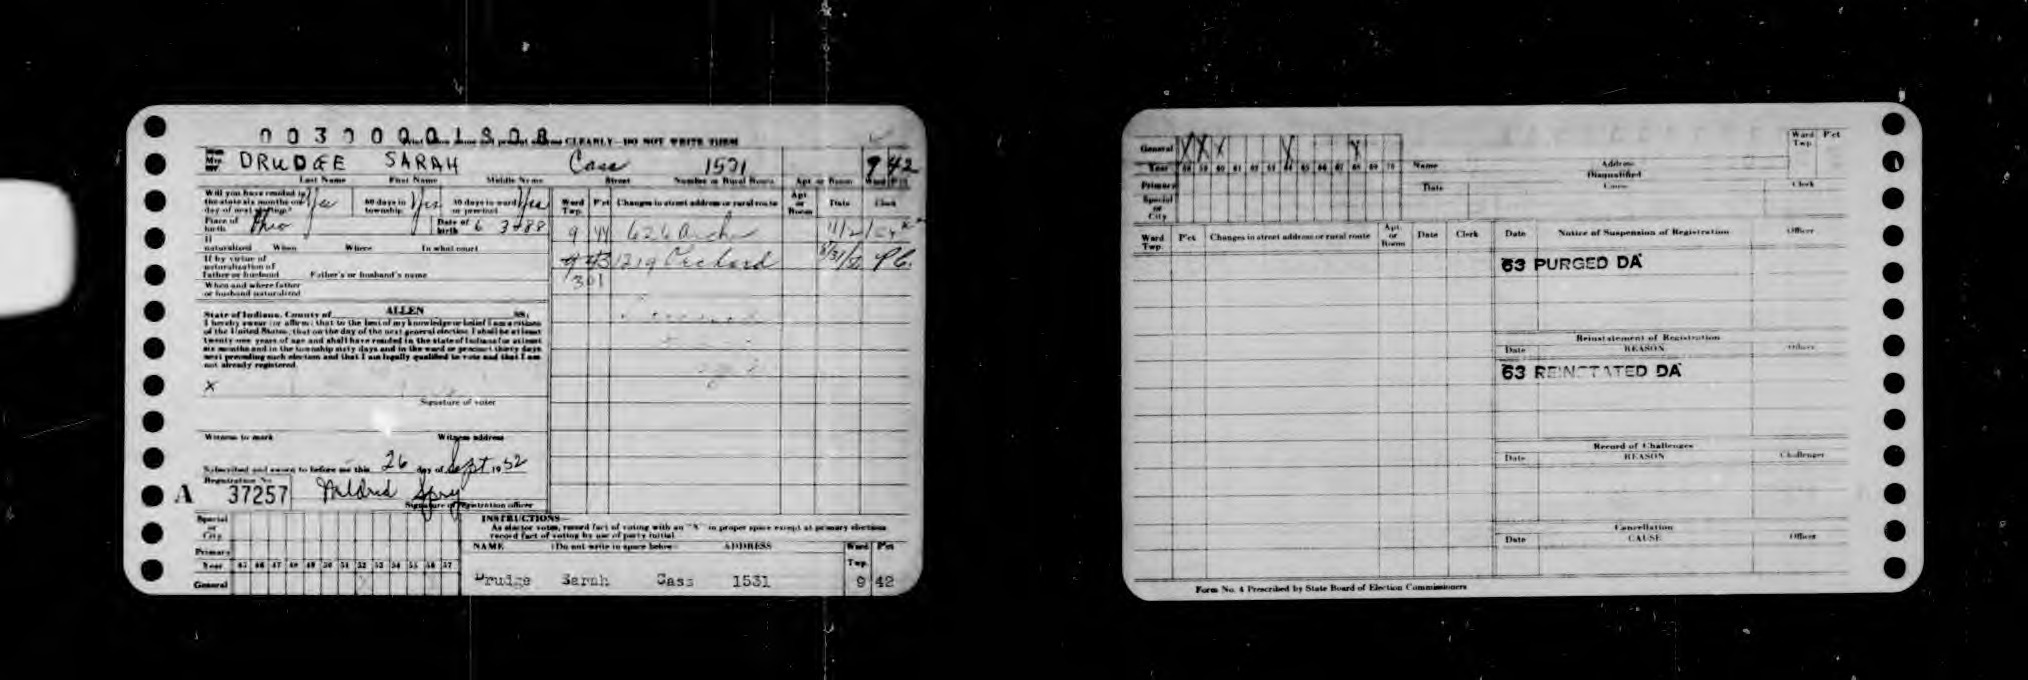 003000001808
Print your name and present address CLEARLY—DO NOT WRITE THEM
Mrs. DRUDGE SARAH Cass 1531 9 42
Last Name First Name Middle Name Street Number or Rural Route Apt or Room Ward Pct
Will you have resided in the state six months on day of next election? Yes 60 days in township Yes 30 days in ward or precinct Yes
Place of birth Ohio Date of birth 6 3 88
If naturalized When Where In what court
If by virtue of naturalization of Father or husband Father's or husband's name
When and where father or husband naturalized
State of Indiana, County of ALLEN SS:
I hereby swear (or affirm) that to the best of my knowledge or belief I am a citizen
of the United States, that on the day of the next general election I shall be at least
twenty-one years of age and shall have resided in the state of Indiana for at least
six months and in the township sixty days and in the ward or precinct thirty days
next preceding such election and that I am legally qualified to vote and that I am
not already registered.
X
Signature of voter
Witness to mark Witness address
Subscribed and sworn to before me this 26 day of Sept 1952
Registration No.
A 37257 Mildred Spry
Signature of registration officer
Ward Twp. P'ct Changes in street address or rural route Apt. or Room Date Clerk
9 44 626 Archer 11/2/
9 43 1219 Orchard 8/31/ PC.
301
Special or City
Primary
Year 45 46 47 48 49 50 51 52 53 54 55 56 57
General
INSTRUCTIONS—
As elector votes, record fact of voting with an "X" in proper space except at primary elections
record fact of voting by use of party initial
NAME (Do not write in space below) ADDRESS Ward Twp. P'ct
Drudge Sarah Cass 1531 9 42
General X X X X X
Year 58 59 60 61 62 63 64 65 66 67 68 69 70
Primary
Special or City
Name Address Ward Twp. P'ct
Disqualified
Date Cause Clerk
Ward Twp. P'ct Changes in street address or rural route Apt. or Room Date Clerk
Date Notice of Suspension of Registration Officer
63 PURGED DA
Reinstatement of Registration
Date REASON Officer
63 REINSTATED DA
Record of Challenges
Date REASON Challenger
Cancellation
Date CAUSE Officer
Form No. 4 Prescribed by State Board of Election Commissioners